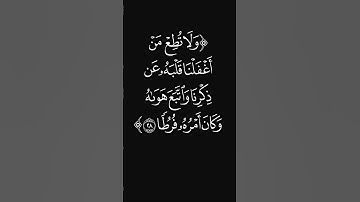 ﴿وَلَا تُطِعْ مَنْ
أَغْفَلْنَا قَلْبَهُۥ عَن
ذِكْرِنَا وَٱتَّبَعَ هَوَىٰهُ
وَكَانَ أَمْرُهُۥ فُرُطًا ٢٨﴾